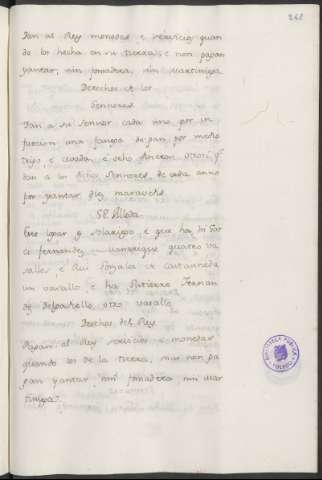 262
Dan al Rey monedas e servicios quan
do los hecha en su tierra, e non pagan
yantar, nin fonsadera, nin martiniega
Derechos de los
Sennores
Dan a su Sennor cada uno por in
furcion una fanega de pan por medio
trigo, e cevada e ocho dineros
dan a los dichos Sennores de cada anno
por yantar diez maravedis.
Villota
Este logar es solariego, e que ha di Gar
ci fernandez manrrique quatro va
sallos e Rui Gonzalez de Castanneda
un vasallo, e ha Gutierre Fernan
dez otro vasallo
Derechos del Rey
Pagan al Rey servicios e monedas
quando los de la tierra, mas non pa
gan yantar nin fonsadera nin mar
tiniega.
BIBLIOTECA PUBLICA
TOLEDO